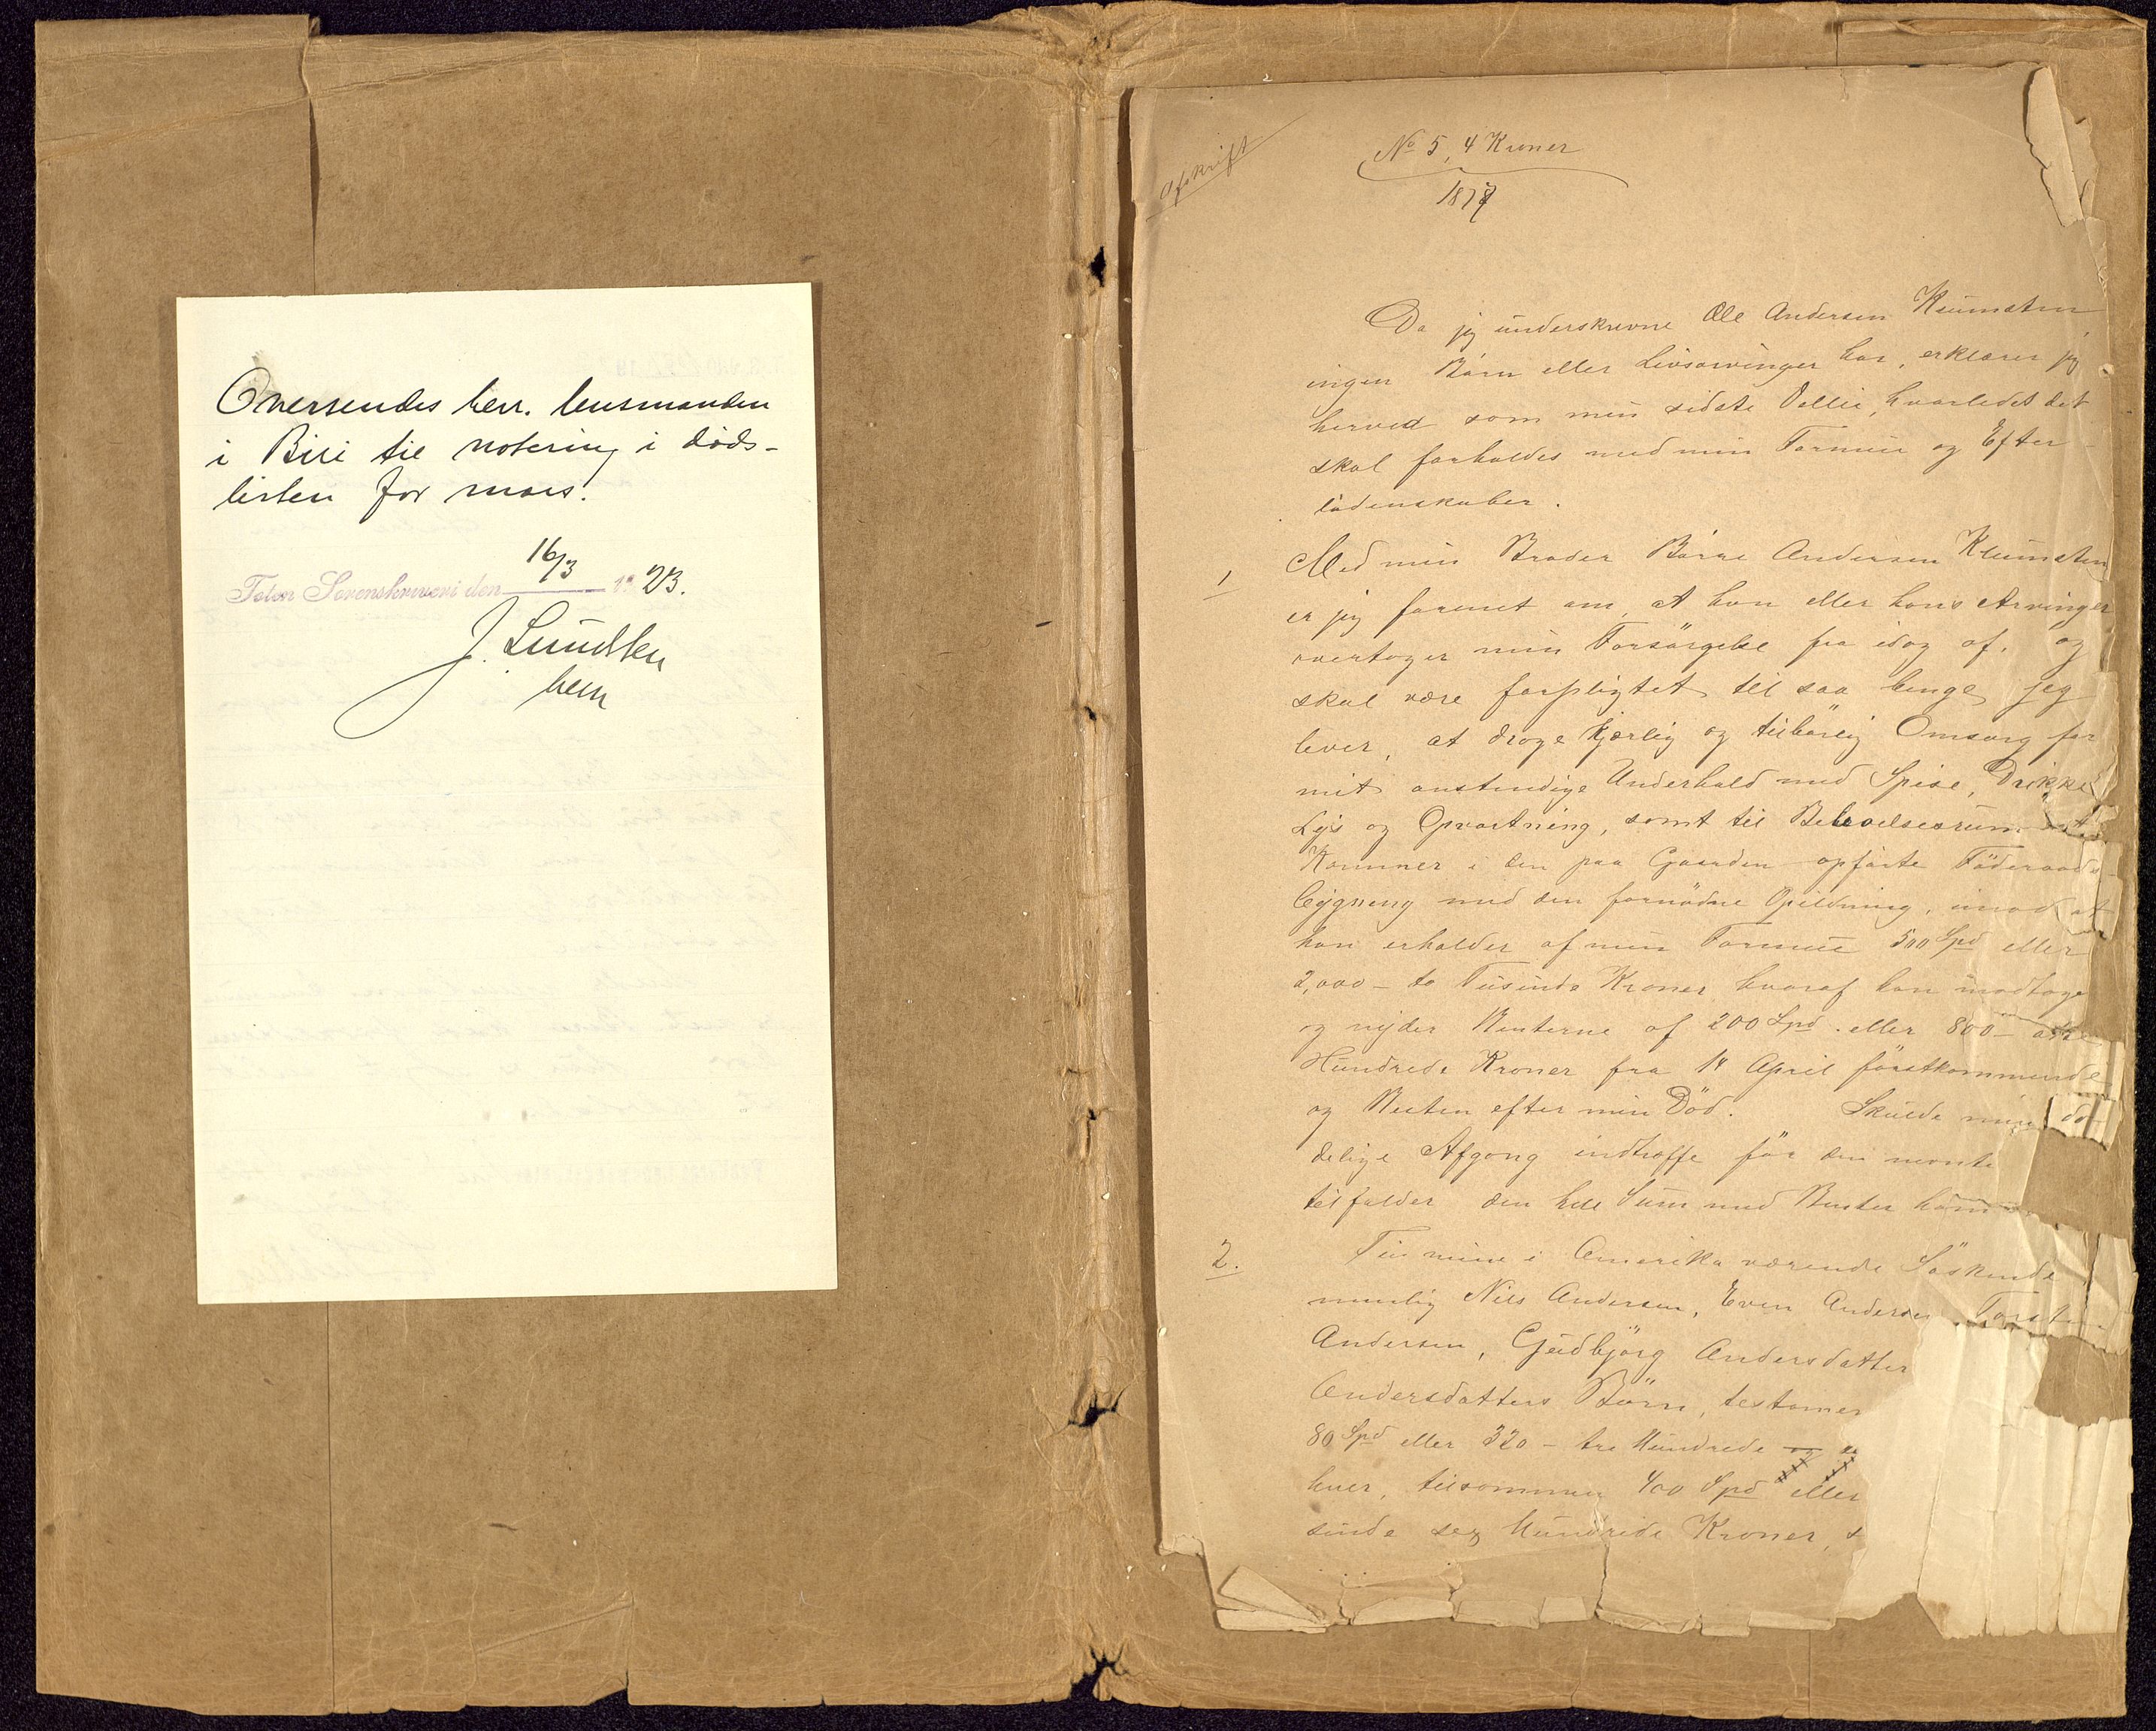 Oversendes herr. lensmanden
i Biri til notering i døds-
listen for mars.
Toten Sorenskriveri den 16/3 1923.
J. Lundsten
Afskrift
No 5, 4 Kroner
1878
Da jeg underskrevne Ole Andersen Kiumsten
ingen Børn eller Livsarvinger har, erklærer jeg
herved som min sidste Villie, hvorledes det
skal forholdes med min Formue og Efter-
ladenskaber.
1 Med min Broder Børre Andersen Kiumsten
er jeg forenet om, at han eller hans Arvinger
overtager min Forsørgelse fra idag af, og
skal være forpligtet til saa længe jeg
lever, at drage kjærlig og tilbørlig Omsorg for
mit anstendige Underhold med Spise, Drikke
Lys og Opvartning, samt til Beboelsesrum
Kammer i den paa Gaarden opførte Föderaads
bygning med den fornødne Opildning, imod at
han erholder af min Formue 500 Spd eller
2,000 - to Tusinde Kroner hvoraf han modtager
og nyder Renterne af 200 Spd. eller 800 - otte
Hundrede Kroner fra 14 April førstkommende
og Resten efter min Död. Skulde min dö-
delige Afgang indtræffe för den
tilfalder den hele Sum med Renter ham
2. Til mine i Amerika værende Söskende
nemlig Nils Andersen, Even Andersen, Torsten
Andersen, Gudbjörg Andersdatter
Andersdatters Börn, testamen
80 Spd eller 320 - tre Hundrede og
hver, tilsammen 400 Spd eller
sinde sex Hundrede Kroner, s